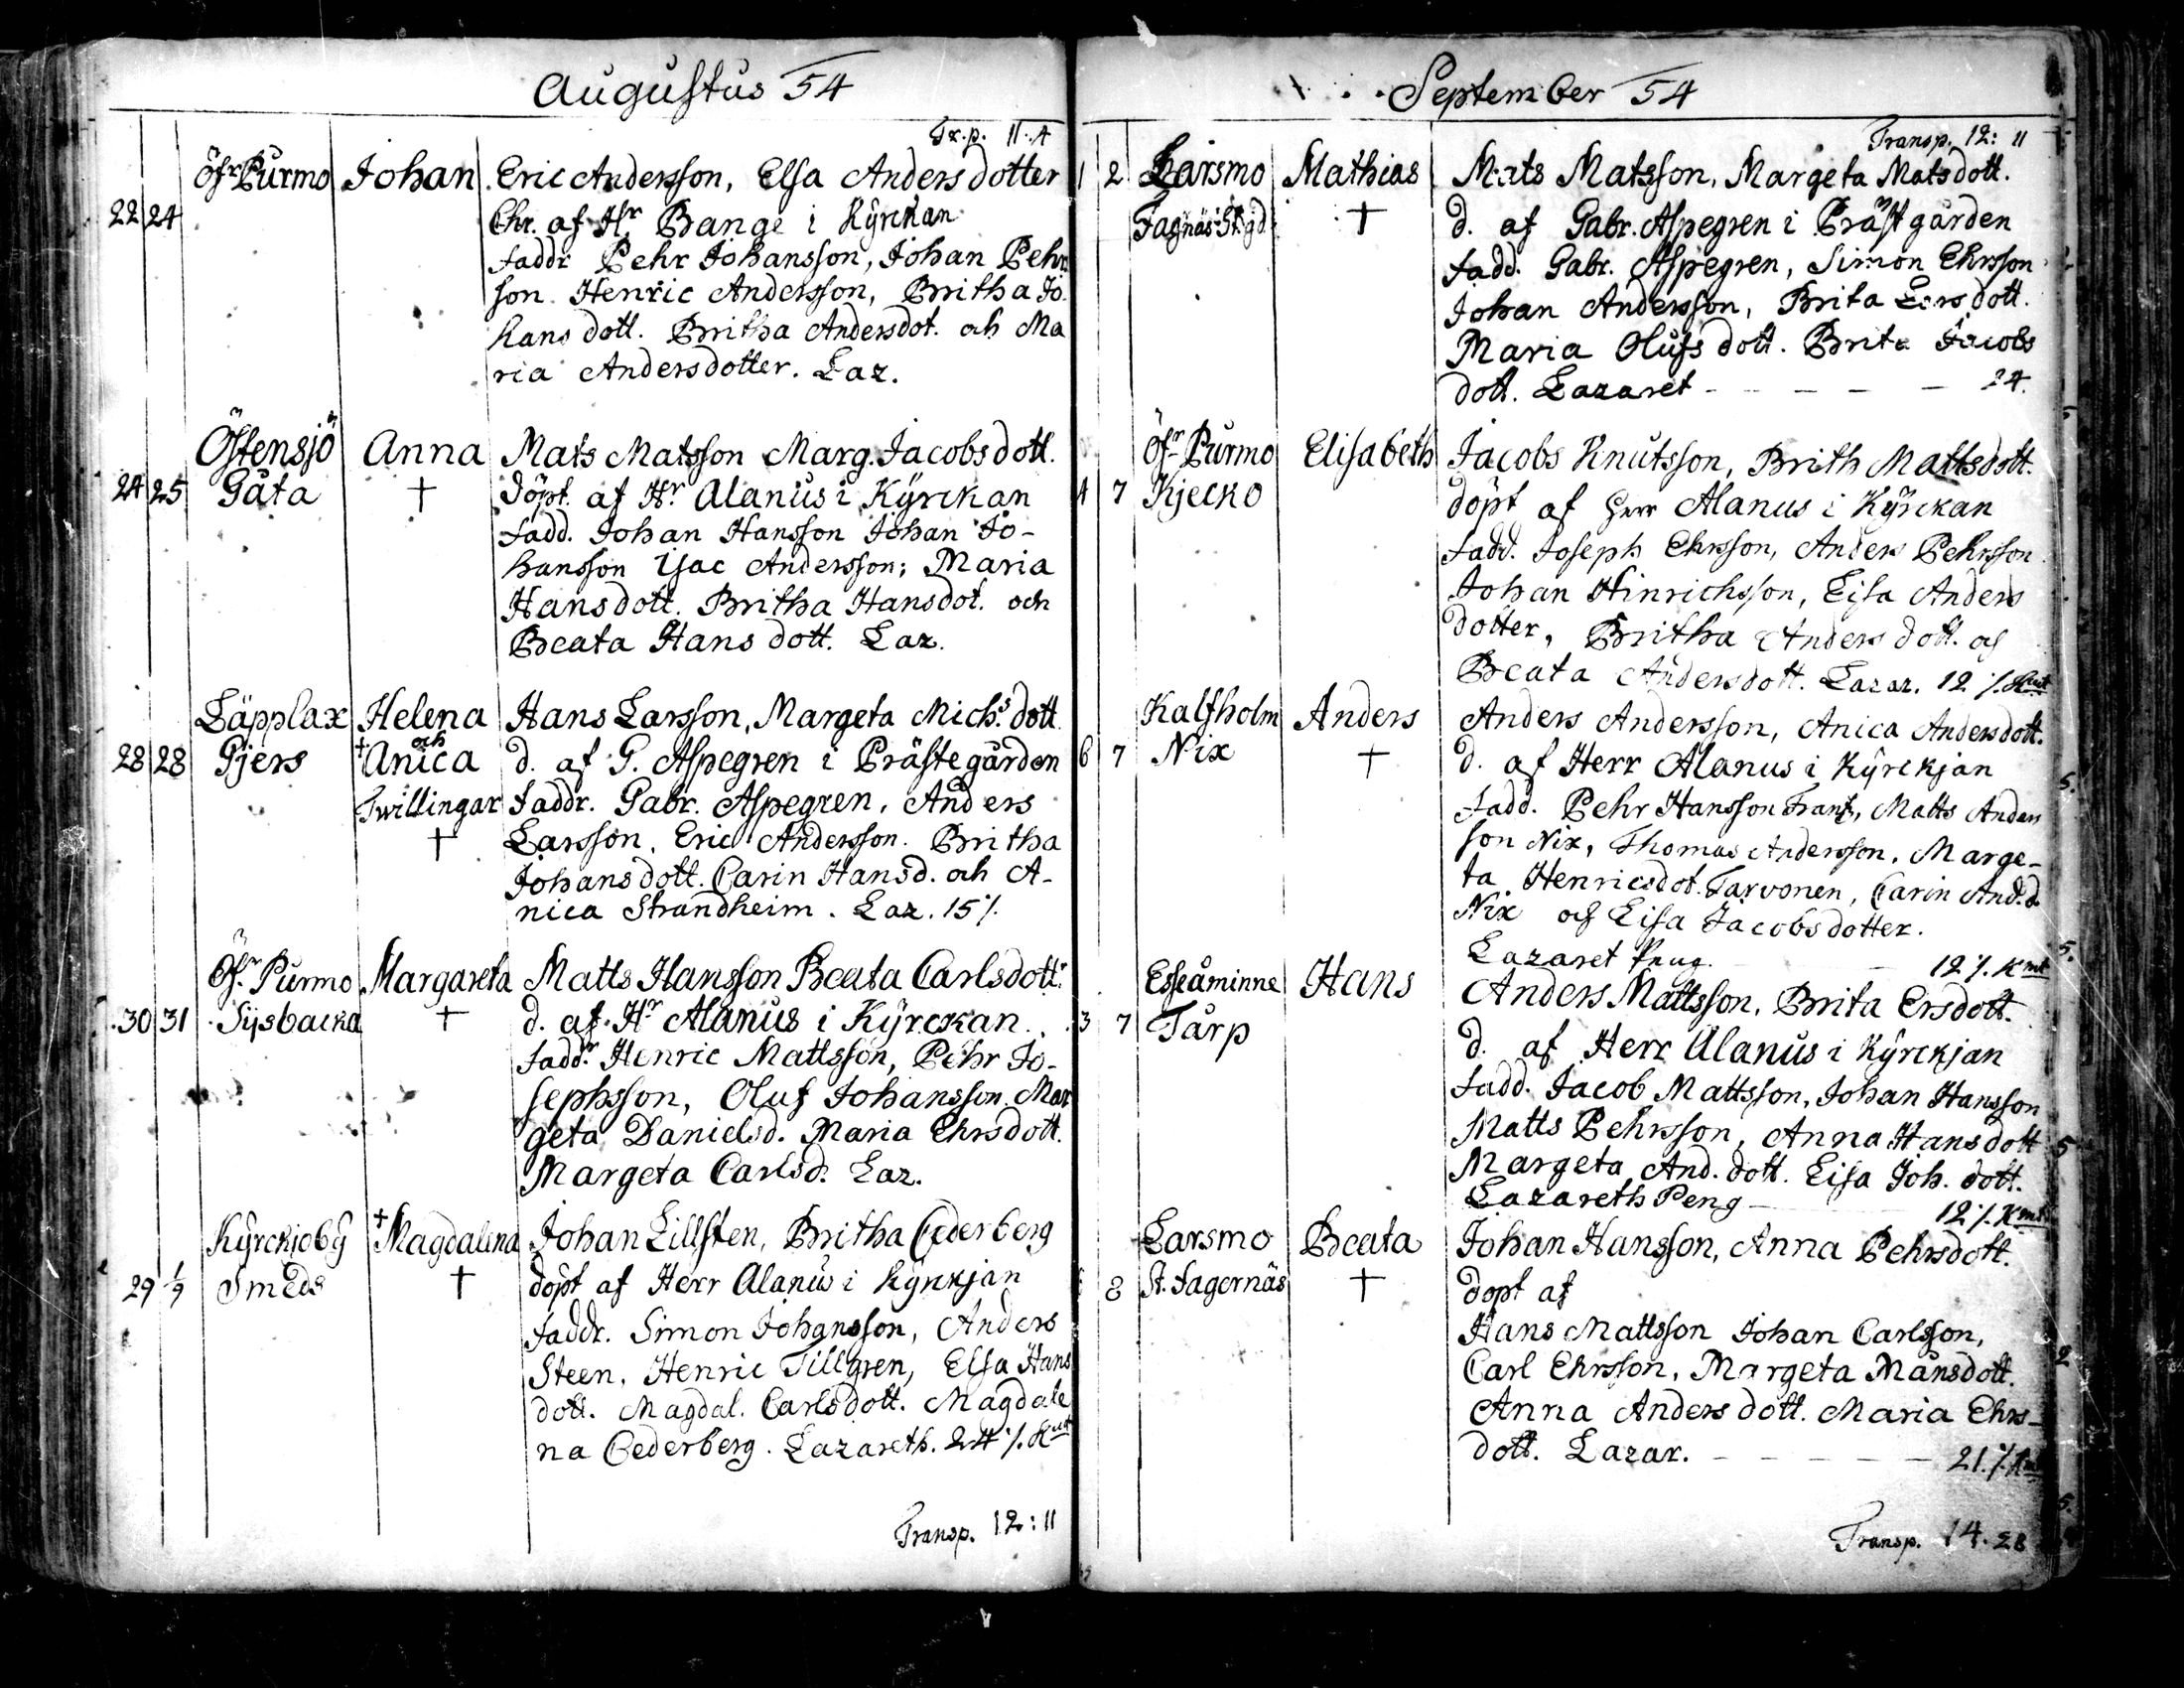 Augustus 54
Tr. p. 11. 4
Öfr Purmo Johan Eric Andersson, Elsa Andersdotter
22 24 Chr. af Hr Bange i Kÿrckan
faddr Pehr Johansson, Johan Pehr
son. Henric Andersson, Britha Jo
hansdott. Britha Andersdot. och Ma
ria Andersdotter. Laz.
Östensjö Anna Mats Matsson Marg. Jacobsdott.
24 25 Gåta † döpt af Hr Alanus i Kÿrckan
fadd. Johan Hansson Johan Jo-
hansson Isac Andersson; Maria
Hansdott. Britha Hansdot. och
Beata Hansdott. Laz.
Läpplax Helena Hans Larsson, Margeta Michs dott
28 28 Gjers och † Anica d. af G. Aspegren i Prästegården
Twillingar faddr. Gabr. Aspegren, Anders
† Larsson, Eric Andersson. Britha
Johansdott. Carin Hansd. och A-
nica Strandheim. Laz. 15 ./.
Öfr Purmo Margareta Matts Hansson Beata Carlsdottr
30 31 Sÿsbacka † d. af Hr Alanus i Kÿrckan.
faddr Henric Mattsson, Pehr Jo-
sephsson, Oluf Johansson. Mar
geta Danielsd. Maria Ehrsdott.
Margeta Carlsd. Laz.
Kÿrckjobÿ † Magdalena Johan Lillsten, Britha Cederberg
29 1/9 Smeds † döpt af Herr Alanus i Kÿrckjan
faddr. Simon Johansson, Anders
Steen, Henric Tillgren, Elsa Hans
dott. Magdal. Carlsdott. Magdale
na Cederberg. Lazareth. 24 ./. Kmt
Transp. 12: 11
September 54
Transp. 12: 11
1 2 Larsmo Mathias Mats Matsson, Margeta Matsdott.
Fagnäs St. gd † d. af Gabr. Aspegren i Prästgården
fadd. Gabr. Aspegren, Simon Ehrsson
Johan Andersson, Brita Larsdott.
Maria Olufsdott. Brita Jacobs
dott. Lazaret - - - - - 24.
Öfr Purmo Elisabeth Jacobs Knutsson, Brith Mattsdott.
4 7 Kjecko döpt af Herr Alanus i Kÿrckan
fadd. Joseph Ehrsson, Anders Pehrsson
Johan Hinrichsson, Lisa Anders
dotter, Britha Andersdott. och
Beata Andersdott. Lazar. 12 ./. Kmt
Kalfholm Anders Anders Andersson, Anica Andersdott.
6 7 Nix † d. af Herr Alanus i Kÿrckjan
fadd. Pehr Hansson Frants, Matts Anders
son Nix, Thomas Andersson, Marge-
ta Henricsdot. Tarvonen, Carin And.d.
Nix och Lisa Jacobsdotter.
Lazaret Peng. 12 ./. Kmt
Esseåminne Hans Anders Mattsson, Brita Ersdott.
3 7 Tårp d. af Herr Alanus i Kÿrckjan
fadd. Jacob Mattsson, Johan Hansson
Matts Pehrsson, Anna Hansdott
Margeta And.dott. Lisa Joh. dott.
Lazareth Peng - 12 ./. Kmt
Larsmo Beata Johan Hansson, Anna Pehrsdott.
8 St. Fagernäs † döpt af
Hans Mattsson Johan Carlsson,
Carl Ehrsson, Margeta Månsdott.
Anna Andersdott. Maria Ehrs-
dott. Lazar. - - - - - 21 ./. Kmt
Transp. 14. 28